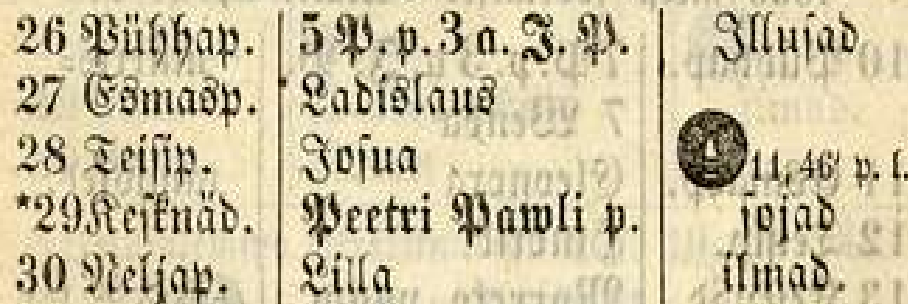 26 Pühhap. 5 P. p. 3 a. J. P. Illusad
27 Esmasp. Ladislaus
28 Teisip. Josua 11, 46' p. l.
*29 Keſknäd. Peetri Pawli p. sojad
30 Neljap. Lilla ilmad.